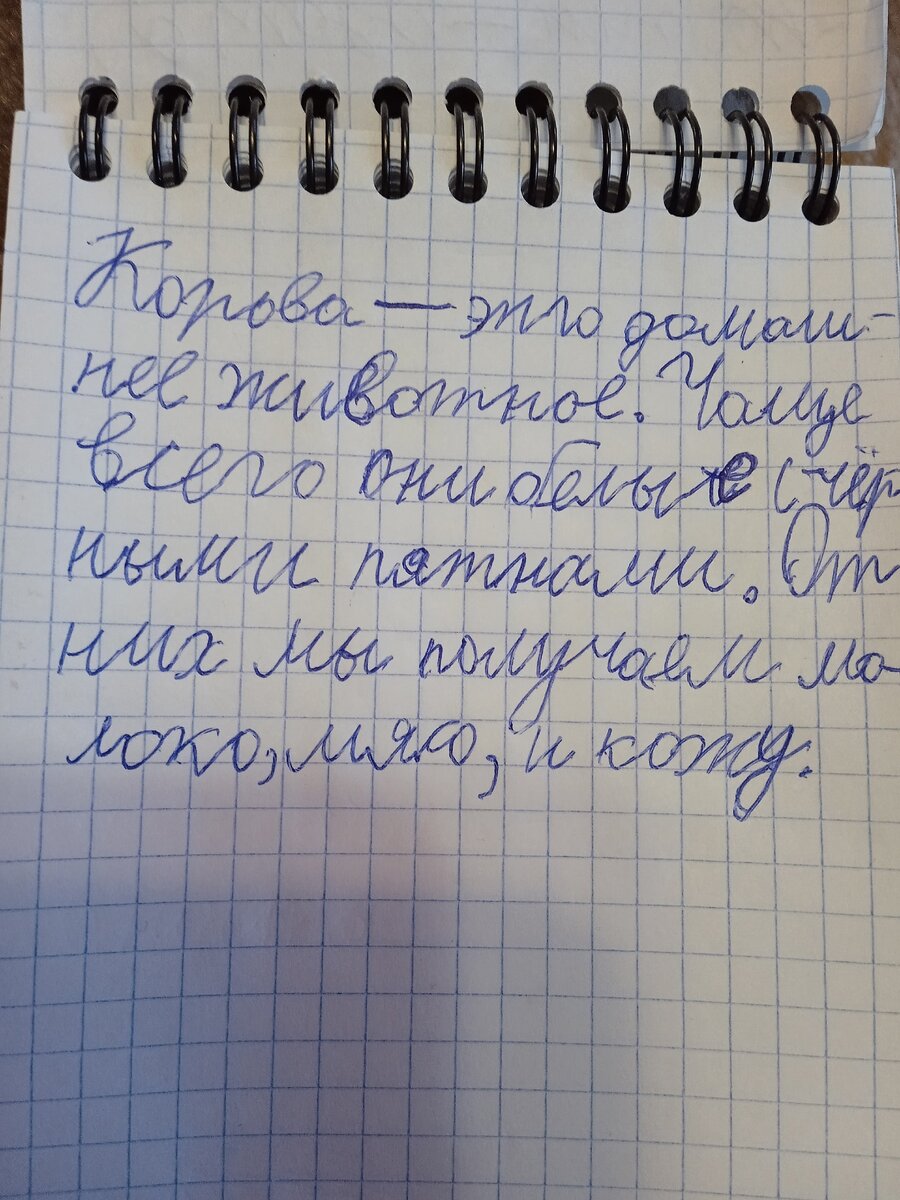 Корова — это домаш-
нее животное. Чаще
всего они белые с чёр
ными пятнами. От
них мы получаем мо-
локо, мясо, и кожу.